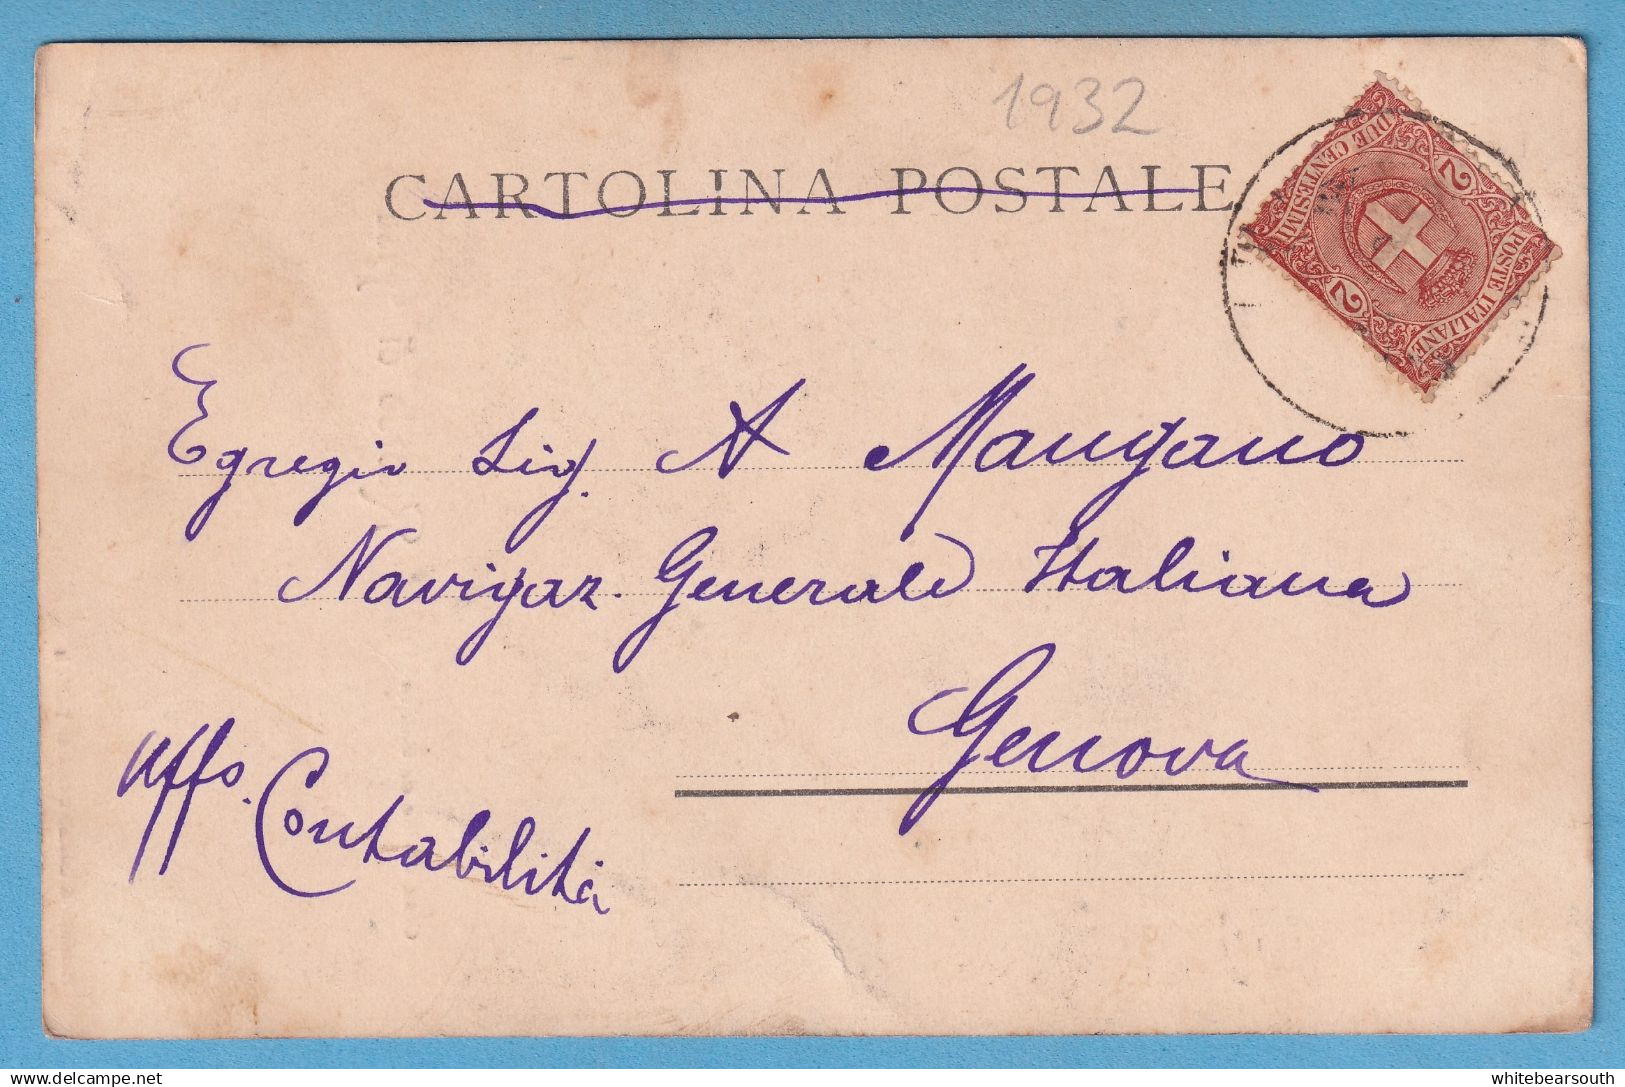 1932
CARTOLINA POSTALE
DUE CENTESIMI
2
2
POSTE ITALIANE
Egregio Sig. A Mangano
Navigaz. Generale Italiana
Genova
Uffo. Contabilità
whitebearsouth